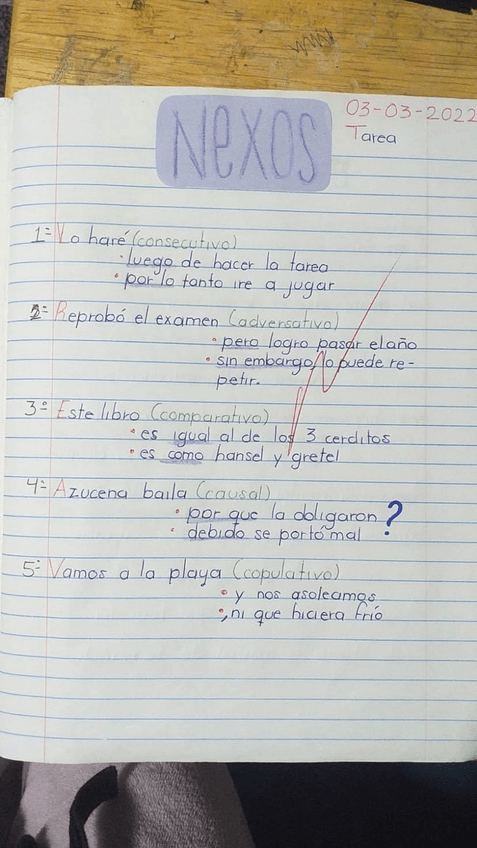 03-03-2022
Nexos
Tarea
1= Lo haré (consecutivo)
• luego de hacer la tarea
• por lo tanto ire a jugar
2= Reprobó el examen (adversativo)
• pero logro pasar el año
• sin embargo, lo puede re-
petir.
3= Este libro (comparativo)
• es igual al de los 3 cerditos
• es como hansel y gretel
4= Azucena baila (causal)
• por que la obligaron ?
• debido se portó mal
5= Vamos a la playa (copulativo)
• y nos asoleamos
• , ni que hiciera frío